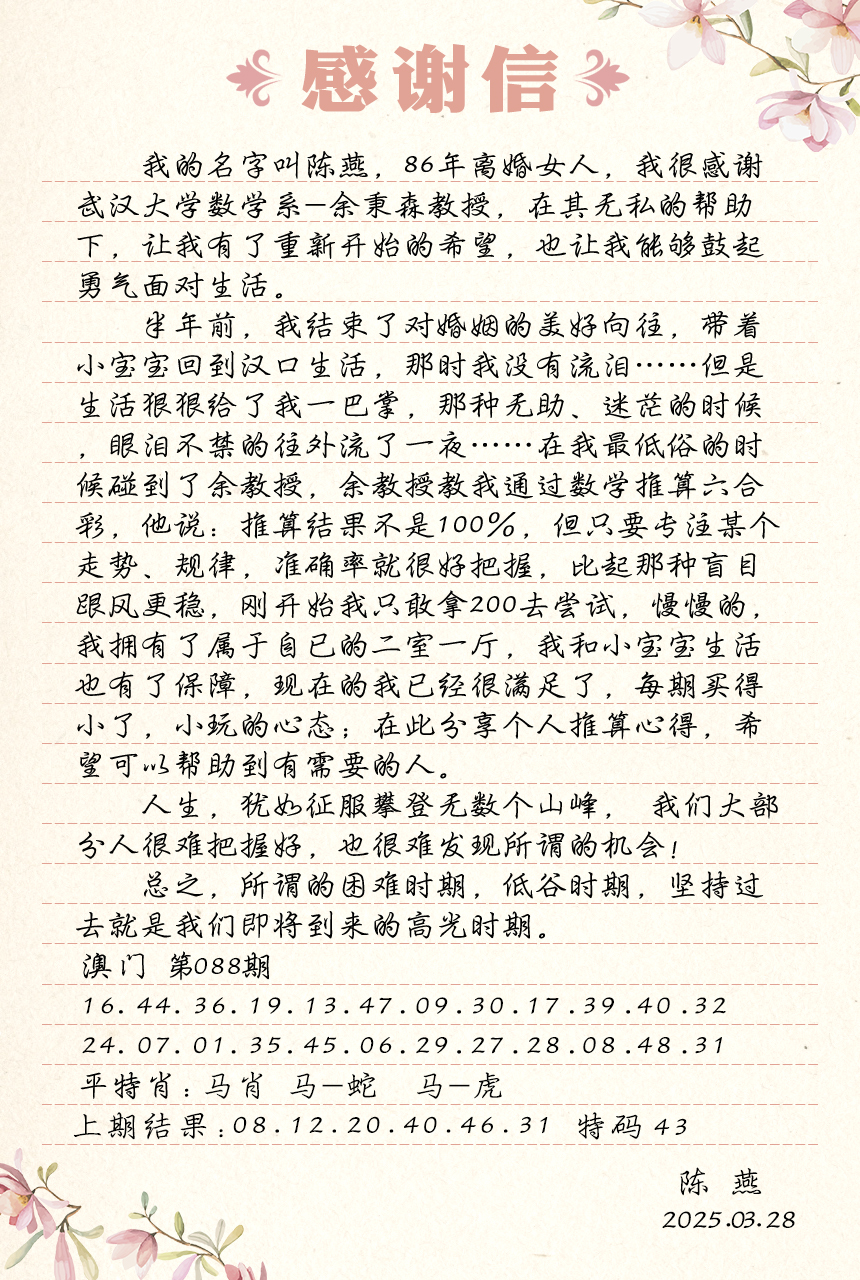 感谢信
我的名字叫陈燕，86年离婚女人，我很感谢
武汉大学数学系—余秉森教授，在其无私的帮助
下，让我有了重新开始的希望，也让我能够鼓起
勇气面对生活。
半年前，我结束了对婚姻的美好向往，带着
小宝宝回到汉口生活，那时我没有流泪……但是
生活狠狠给了我一巴掌，那种无助、迷茫的时候
，眼泪不禁的往外流了一夜……在我最低俗的时
候碰到了余教授，余教授教我通过数学推算六合
彩，他说：推算结果不是100%，但只要专注某个
走势、规律，准确率就很好把握，比起那种盲目
跟风更稳，刚开始我只敢拿200去尝试，慢慢的，
我拥有了属于自己的二室一厅，我和小宝宝生活
也有了保障，现在的我已经很满足了，每期买得
小了，小玩的心态；在此分享个人推算心得，希
望可以帮助到有需要的人。
人生，犹如征服攀登无数个山峰， 我们大部
分人很难把握好，也很难发现所谓的机会！
总之，所谓的困难时期，低谷时期，坚持过
去就是我们即将到来的高光时期。
澳门 第088期
16.44.36.19.13.47.09.30.17.39.40.32
24.07.01.35.45.06.29.27.28.08.48.31
平特肖：马肖 马—蛇 马—虎
上期结果：08.12.20.40.46.31 特码 43
陈 燕
2025.03.28